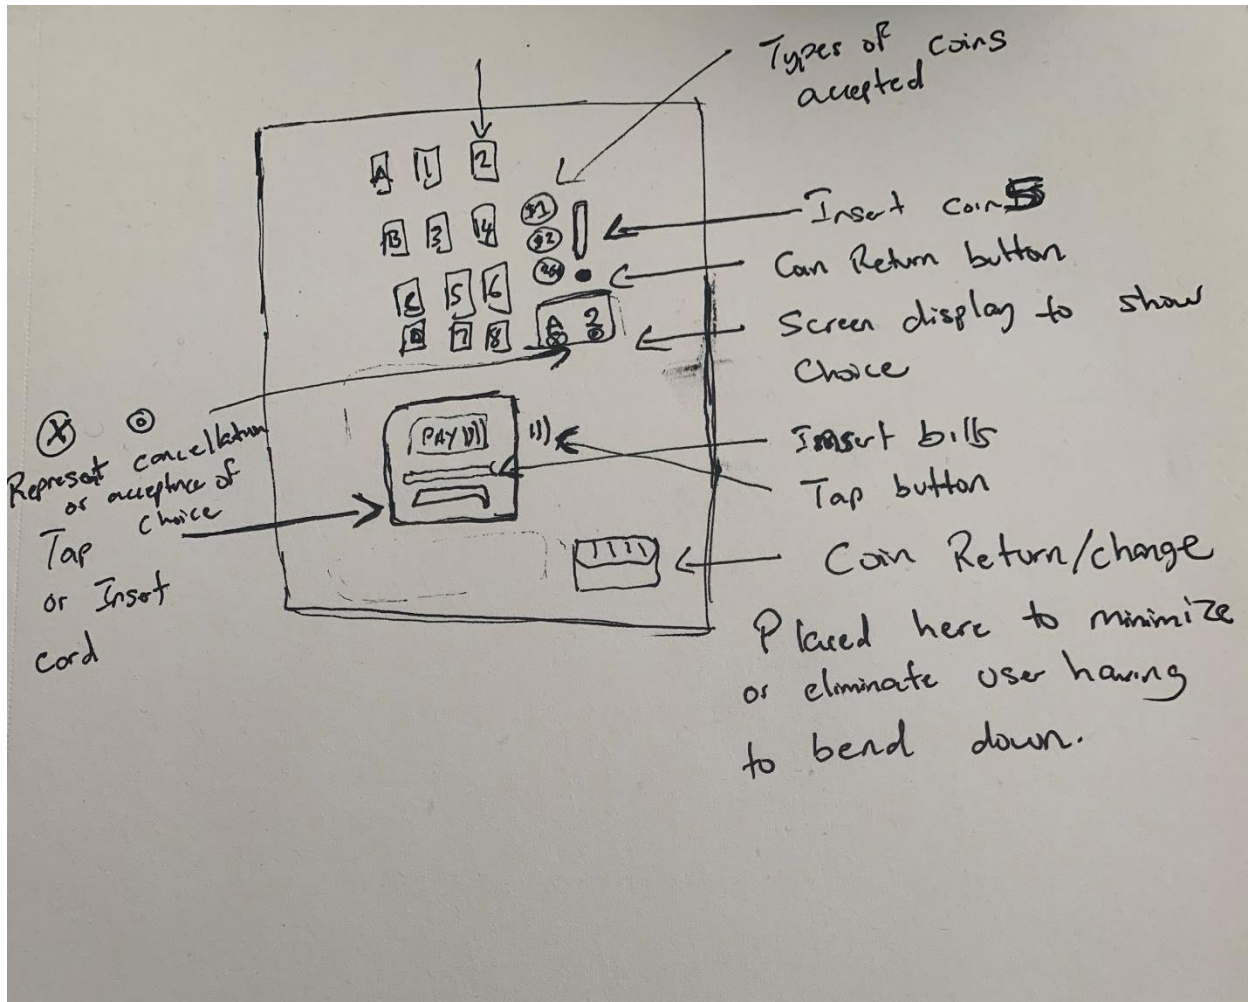 Types of coins
accepted
A 1 2
B 3 4
5 6
D 7 8
$1
$2
A 2
Insert coins
Coin Return button
Screen display to show
Choice
PAY
Insert bills
Tap button
Coin Return/change
Placed here to minimize
or eliminate user having
to bend down.
X O
Represent cancellation
or acceptance of
choice
Tap
or Insert
card